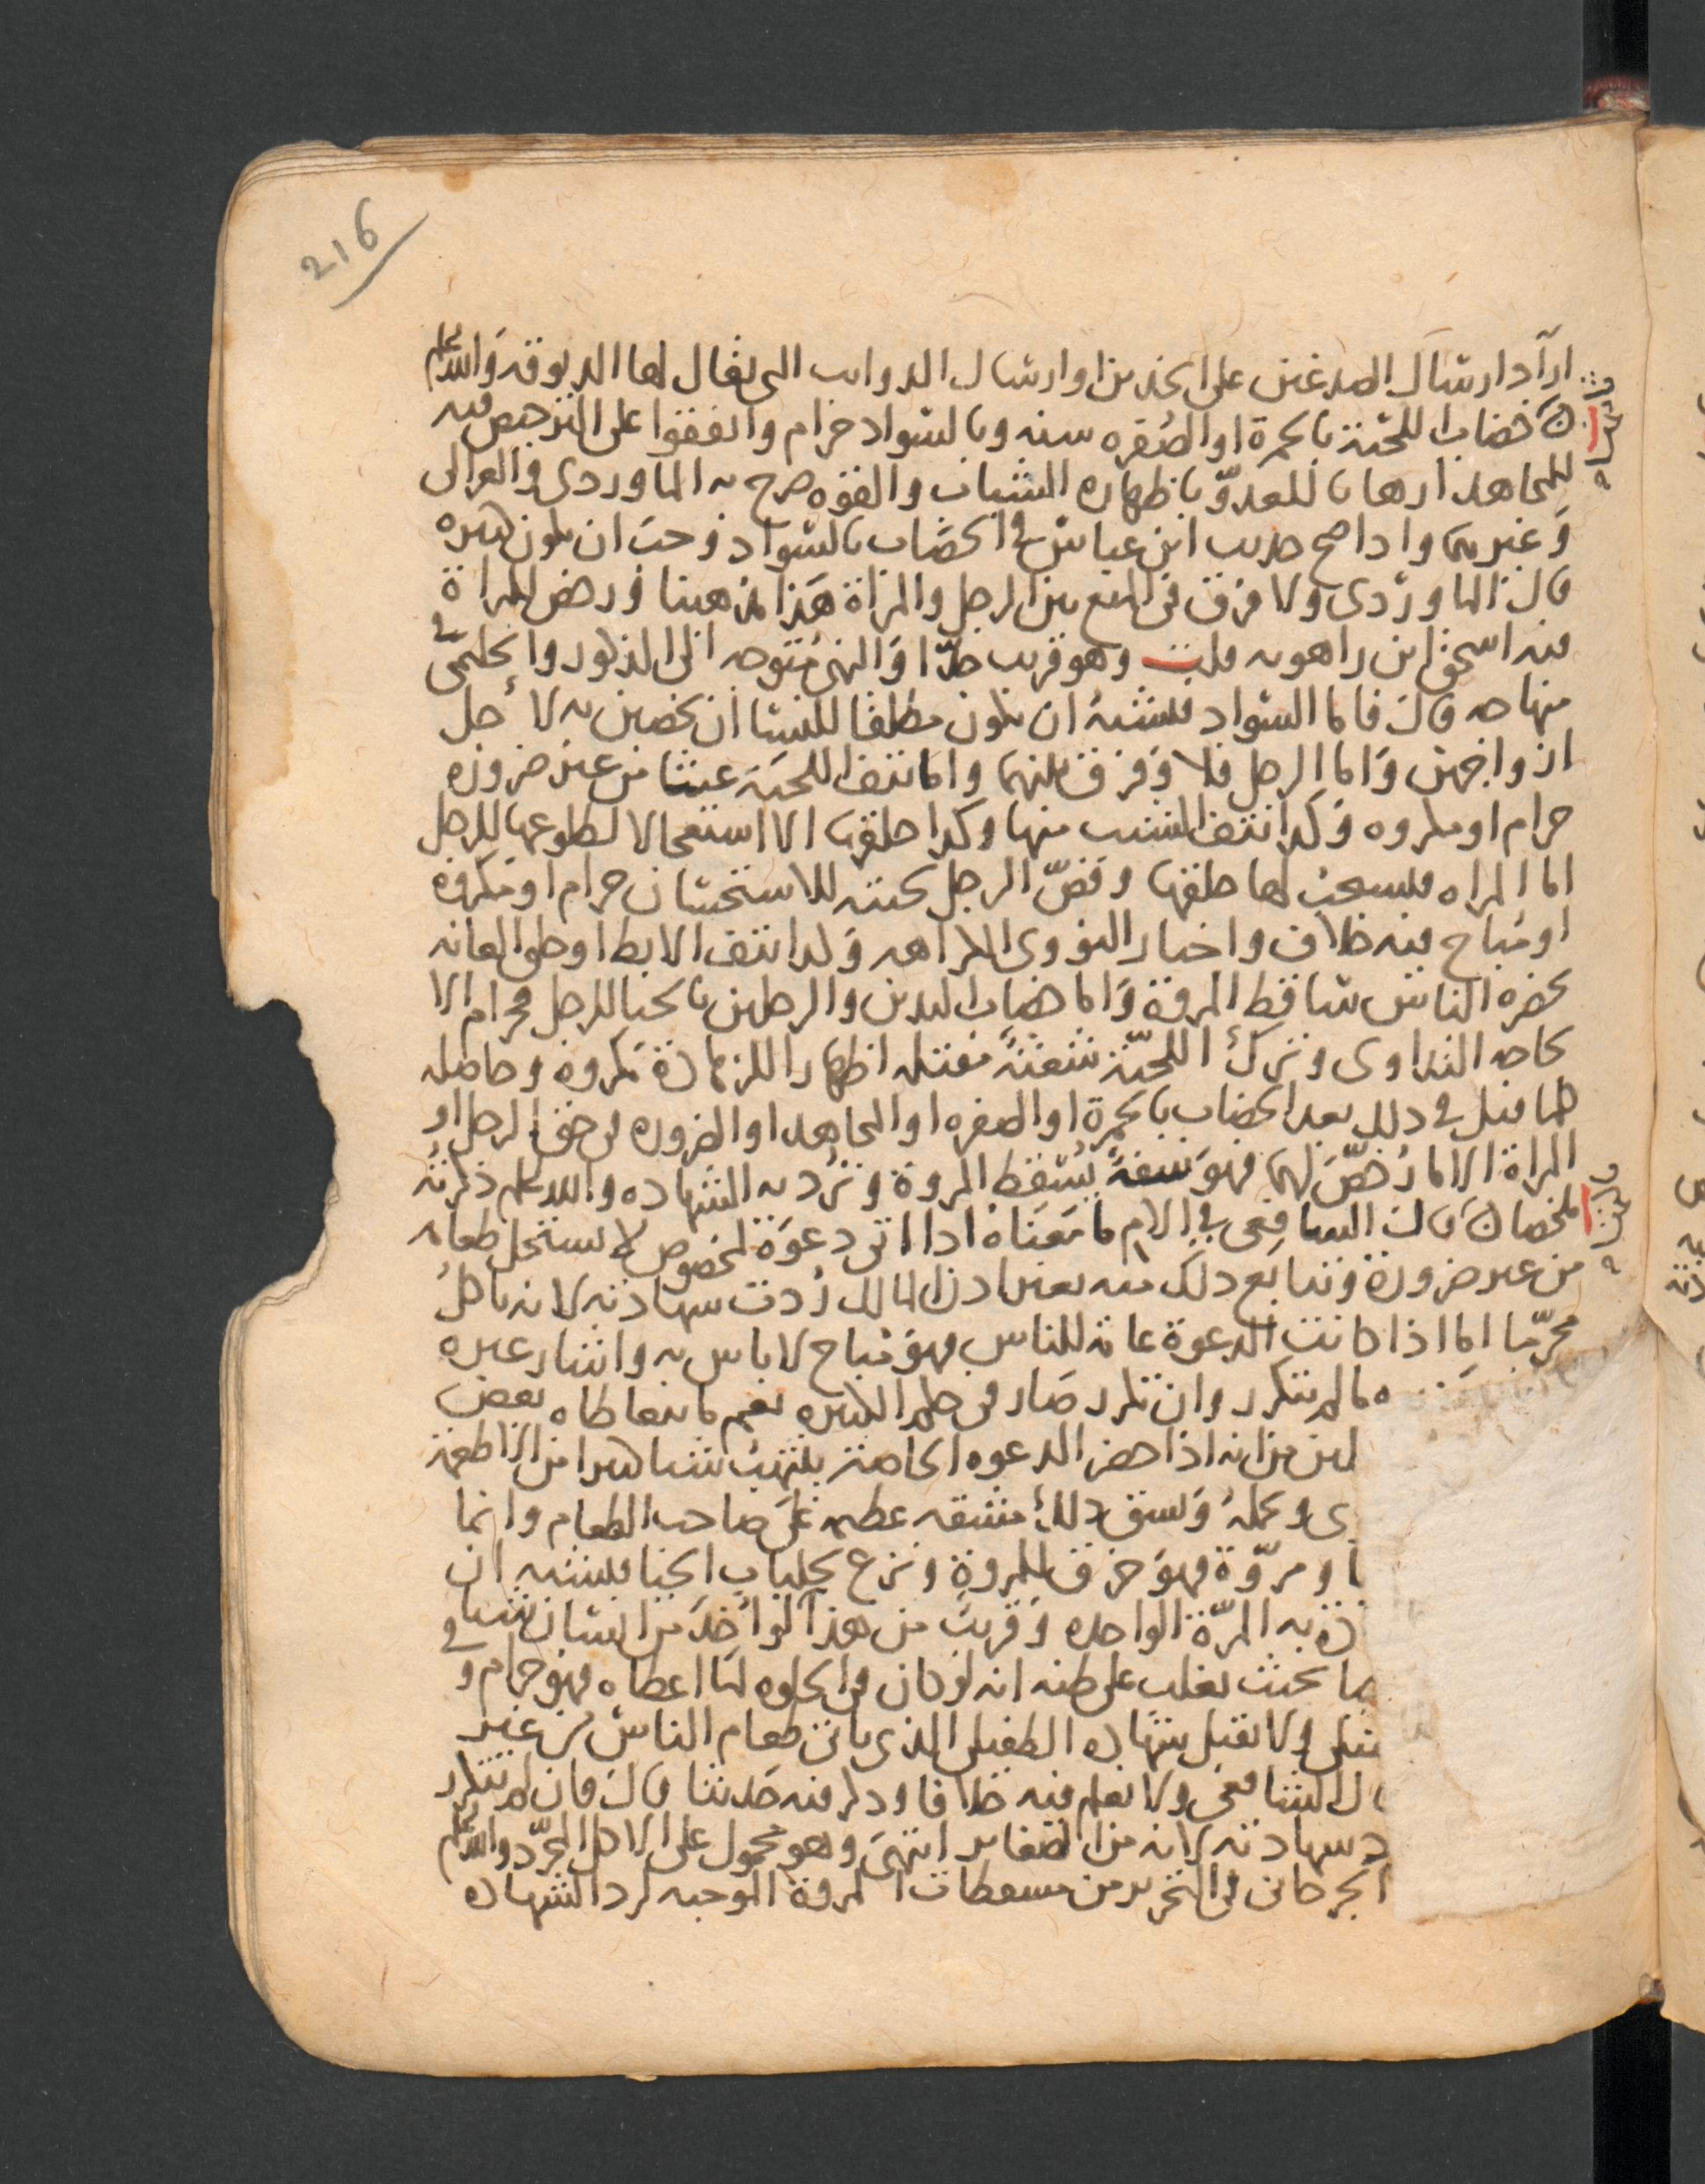 216
اراد ارسال الصدغين على الخدين او ارسال الدواب التى يقال لها الدبوقة والله اعلم
خضاب اللحية بالحمرة او الصفره سنه وبالسواد حرام واتفقوا على الترخيص فيه
للمجاهد ارهابا للعدوّ باظهاره الشباب والقوه صرح به الماوردى والغزالى
وغيرهما واذا صح حديث ابن عباس فى الخضاب بالسواد وجب ان يكون كبيره
قال الماوردى ولا فرق فى المنع بين الرجل والمراة هذا مذهبنا ورخص للمراة
فيه اسحق ابن راهويه قلت وهو قريب جدّا والنهى متوجه الى الذكور والحليمى فى
منهاجه قال فاما السواد فيشبه ان يكون مطلقا للنسا ان يخضبن به لاجل
ازواجهن واما الرجل فلا وفرق بينهما واما نتف اللحية عبثا من غير ضروره
حرام او مكروه وكذا نتف الشيب منها وكذا حلقها الا استعجالا لطلوعها للرجل
اما المراه فيستحب لها حلقها وقصّ الرجل لحيته للاستحسان حرام او مكروه
او مباح فيه خلاف واختار النووى الكراهه وكذا نتف الابط او حلق العانه
بحضره الناس ساقط المروة واما خضاب اليدين والرجلين بالحنا للرجل فحرام الا
لحاجه التداوى وترك اللحية شعثة مفتله اظهارا للزهادة مكروه وحاصله
كلما قيل فى ذلك بعد الخضاب بالحمرة او الصفره او المجاهد او الضروره فى حق الرجل او
المراة الا ما رُخصّ لهما فهو سفه يُسقط المروة وتُرد به الشهاده والله اعلم ذكرته
ملخصا قال الشافعى فى الام ما معناه اذا اتى دعوة لخصوص لا يستحل طعامه
من غير ضرورة وتتابع ذلك منه بغير اذن المالك رُدت شهادته لانه ياكل
محرّما اما اذا كانت الدعوة عامة للناس فهو مباح لا باس به واشار غيره
ما لم يتكرر وان تكرر صار فى حكم الكبيره نعم ما يتعاطاه بعض
لين من انه اذا حضر الدعوه الخاصة ينتهب شيا كثيرا من الاطعمة
ى ويحمله ويشق ذلك مشقه عظيمة على صاحب الطعام وانما
ا ومروّة فهو خرق للمروة ونزع لجلباب الحيا فيشبه ان
دة به المرّة الواحده وقريب من هذا لو اخذ من انسان شيا فى
ما بحيث يغلب على ظنه انه لو كان فى الخلوه لما اعطاه فهو حرام و
ولا تقبل شهادة الطفيلى الذى ياتى طعام الناس من غير
ال الشافعى ولا نعلم فيه خلافا وذكر فيه حديثا قال فان لم يتكرر
د شهادته لانه من الصغاير انتهى وهو محمول على الاكل المجرّد والله اعلم
الجرجانى فى التحرير من مسقطات المروة الموجبه لرد الشهادة